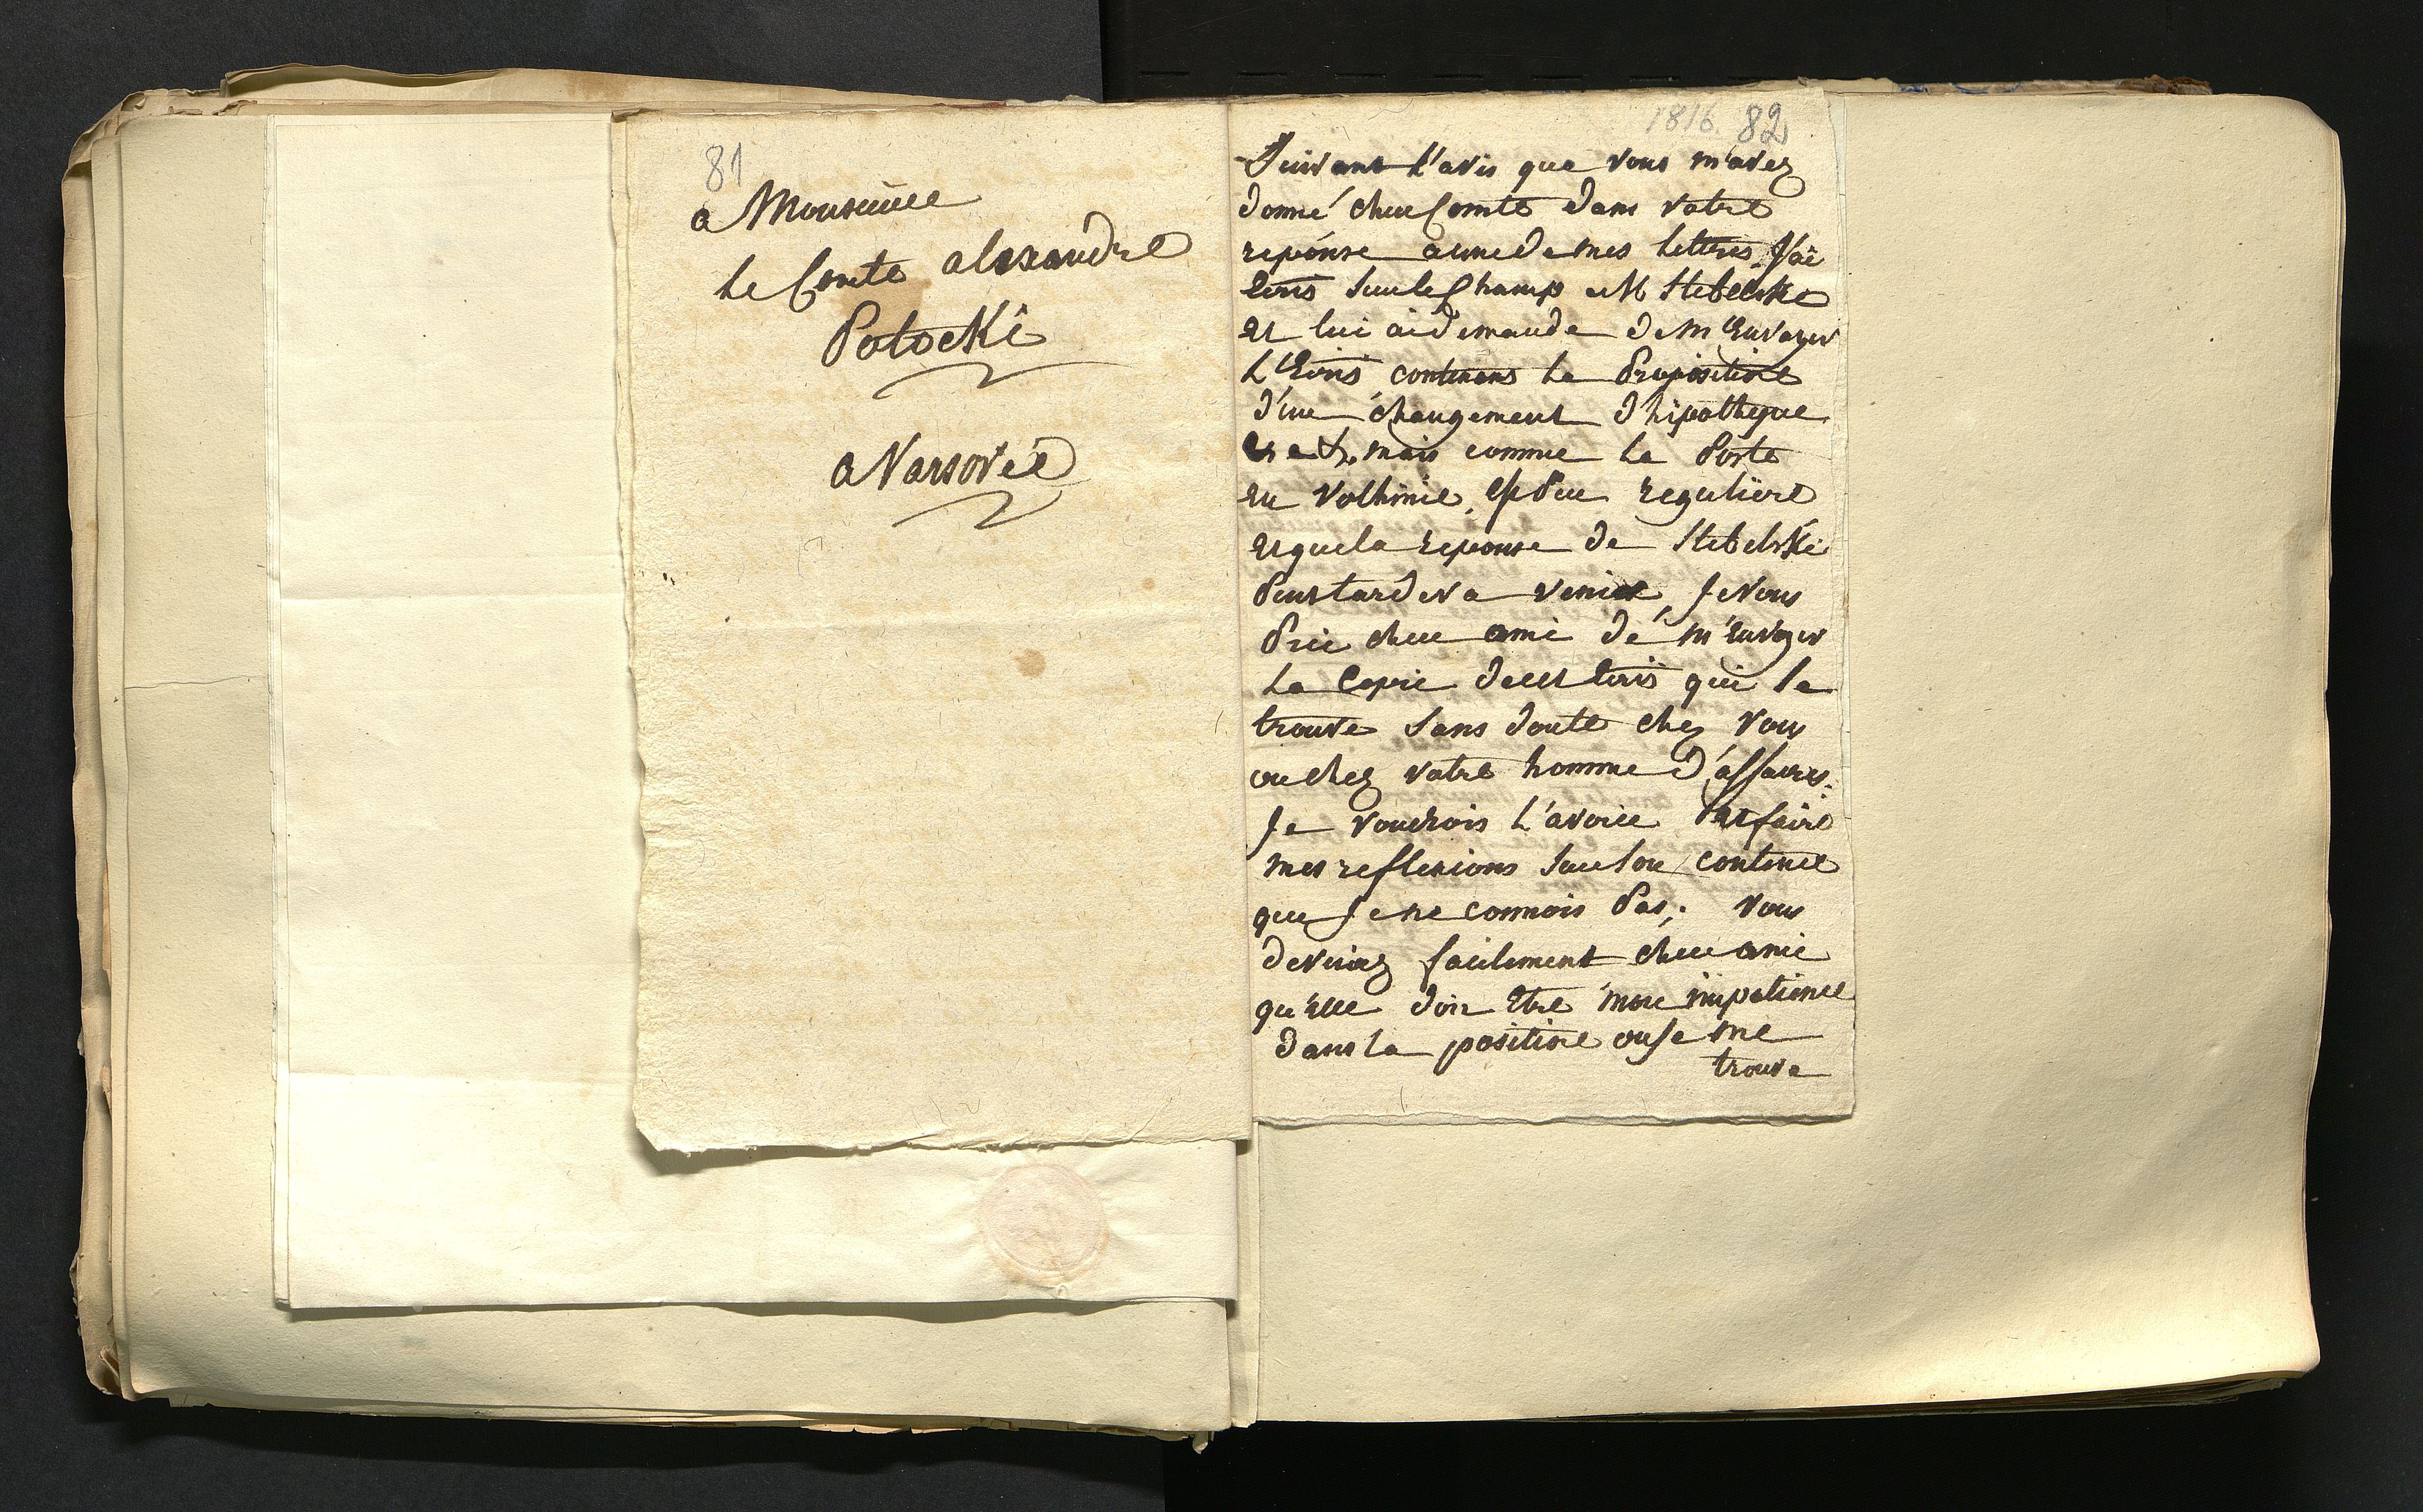 81
a Monsieur
le Comte alexandre
Potocki
a Varsovie
1816. 82
Suivant l'avis que vous m'avez
donné cher Comte dans votre
reponse a une de mes lettres, J'ai
écris sur le Champ a M Stebelski
et lui ai demandé de m'envoyer
l'Ecris contenens la Proposition
d'un changement d'hipotheque
mais comme la Poste
en Volhinie, est peu reguliere
et que la reponse de Stebelski
Peut tarder a venir, Je vous
Prie cher ami de m'envoyer
la Copie de cet écris qui se
trouve sans doute chez vous
ou chez votre homme d'affaires.
Je voudrois l'avoir et faire
mes reflexions sur son contenu
que Je ne connois Pas; vous
devinez facilement cher ami
qu'elle doit etre mon impatience
dans la position ou Je me
trouve